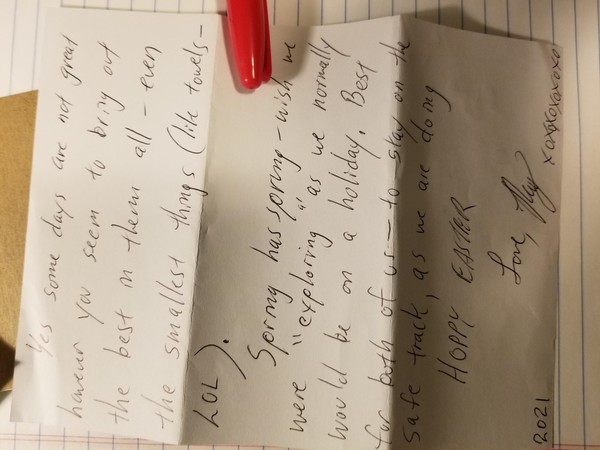 Yes some days are not great
however you seem to bring out
the best in them all - even
the smallest things (like towels -
LOL).
Spring has sprung - wish we
were "exploring" as we normally
would be on a holiday. Best
for both of us - to stay on the
safe track, as we are doing
HOPPY EASTER
Love,
xoxoxoxoxoxo
2021